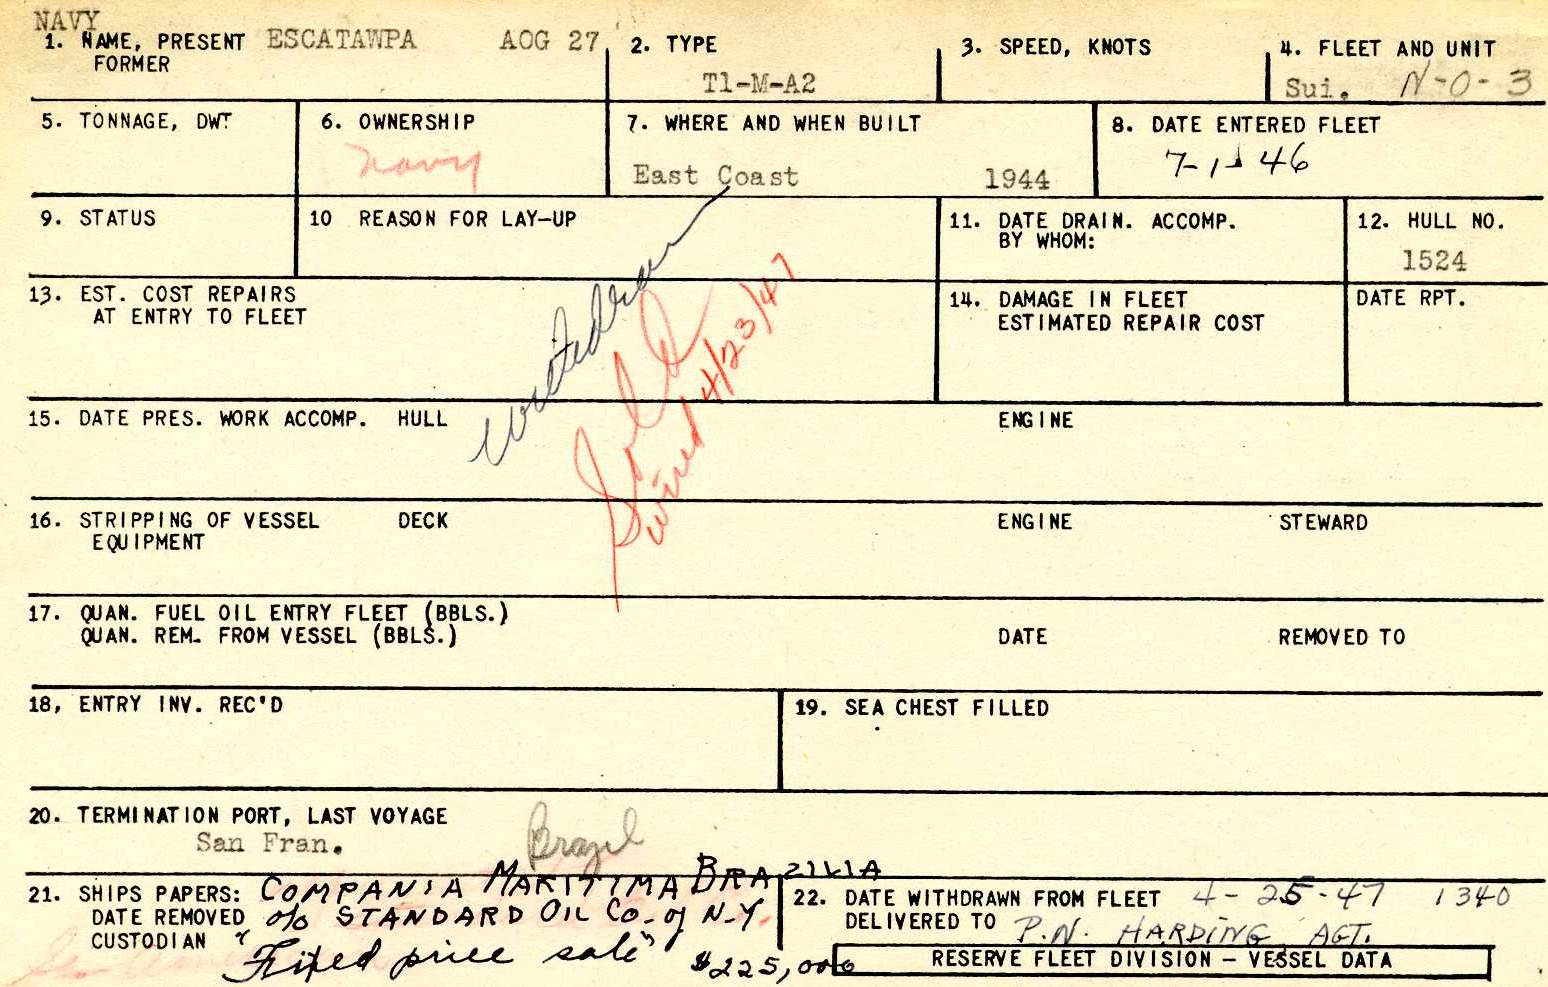 NAVY
1. NAME, PRESENT ESCATAWPA AOG 27
FORMER
2. TYPE
T1-M-A2
3. SPEED, KNOTS
4. FLEET AND UNIT
Sui. N-O-3
5. TONNAGE, DWT
6. OWNERSHIP
Navy
7. WHERE AND WHEN BUILT
East Coast 1944
8. DATE ENTERED FLEET
7-1-46
9. STATUS
10 REASON FOR LAY-UP
11. DATE DRAIN. ACCOMP.
BY WHOM:
12. HULL NO.
1524
13. EST. COST REPAIRS
AT ENTRY TO FLEET
14. DAMAGE IN FLEET
ESTIMATED REPAIR COST
DATE RPT.
withdrawn
Sold
wired 4/23/47
15. DATE PRES. WORK ACCOMP. HULL ENGINE
16. STRIPPING OF VESSEL DECK ENGINE STEWARD
EQUIPMENT
17. QUAN. FUEL OIL ENTRY FLEET (BBLS.)
QUAN. REM. FROM VESSEL (BBLS.) DATE REMOVED TO
18, ENTRY INV. REC'D
19. SEA CHEST FILLED
20. TERMINATION PORT, LAST VOYAGE
San Fran. Brazil
21. SHIPS PAPERS: COMPANIA MARITIMA BRAZILIA
DATE REMOVED o/o STANDARD OIL Co. of N.Y.
CUSTODIAN "Fixed price sale" $225,000
22. DATE WITHDRAWN FROM FLEET 4-25-47 1340
DELIVERED TO P.N. HARDING, AGT.
RESERVE FLEET DIVISION - VESSEL DATA